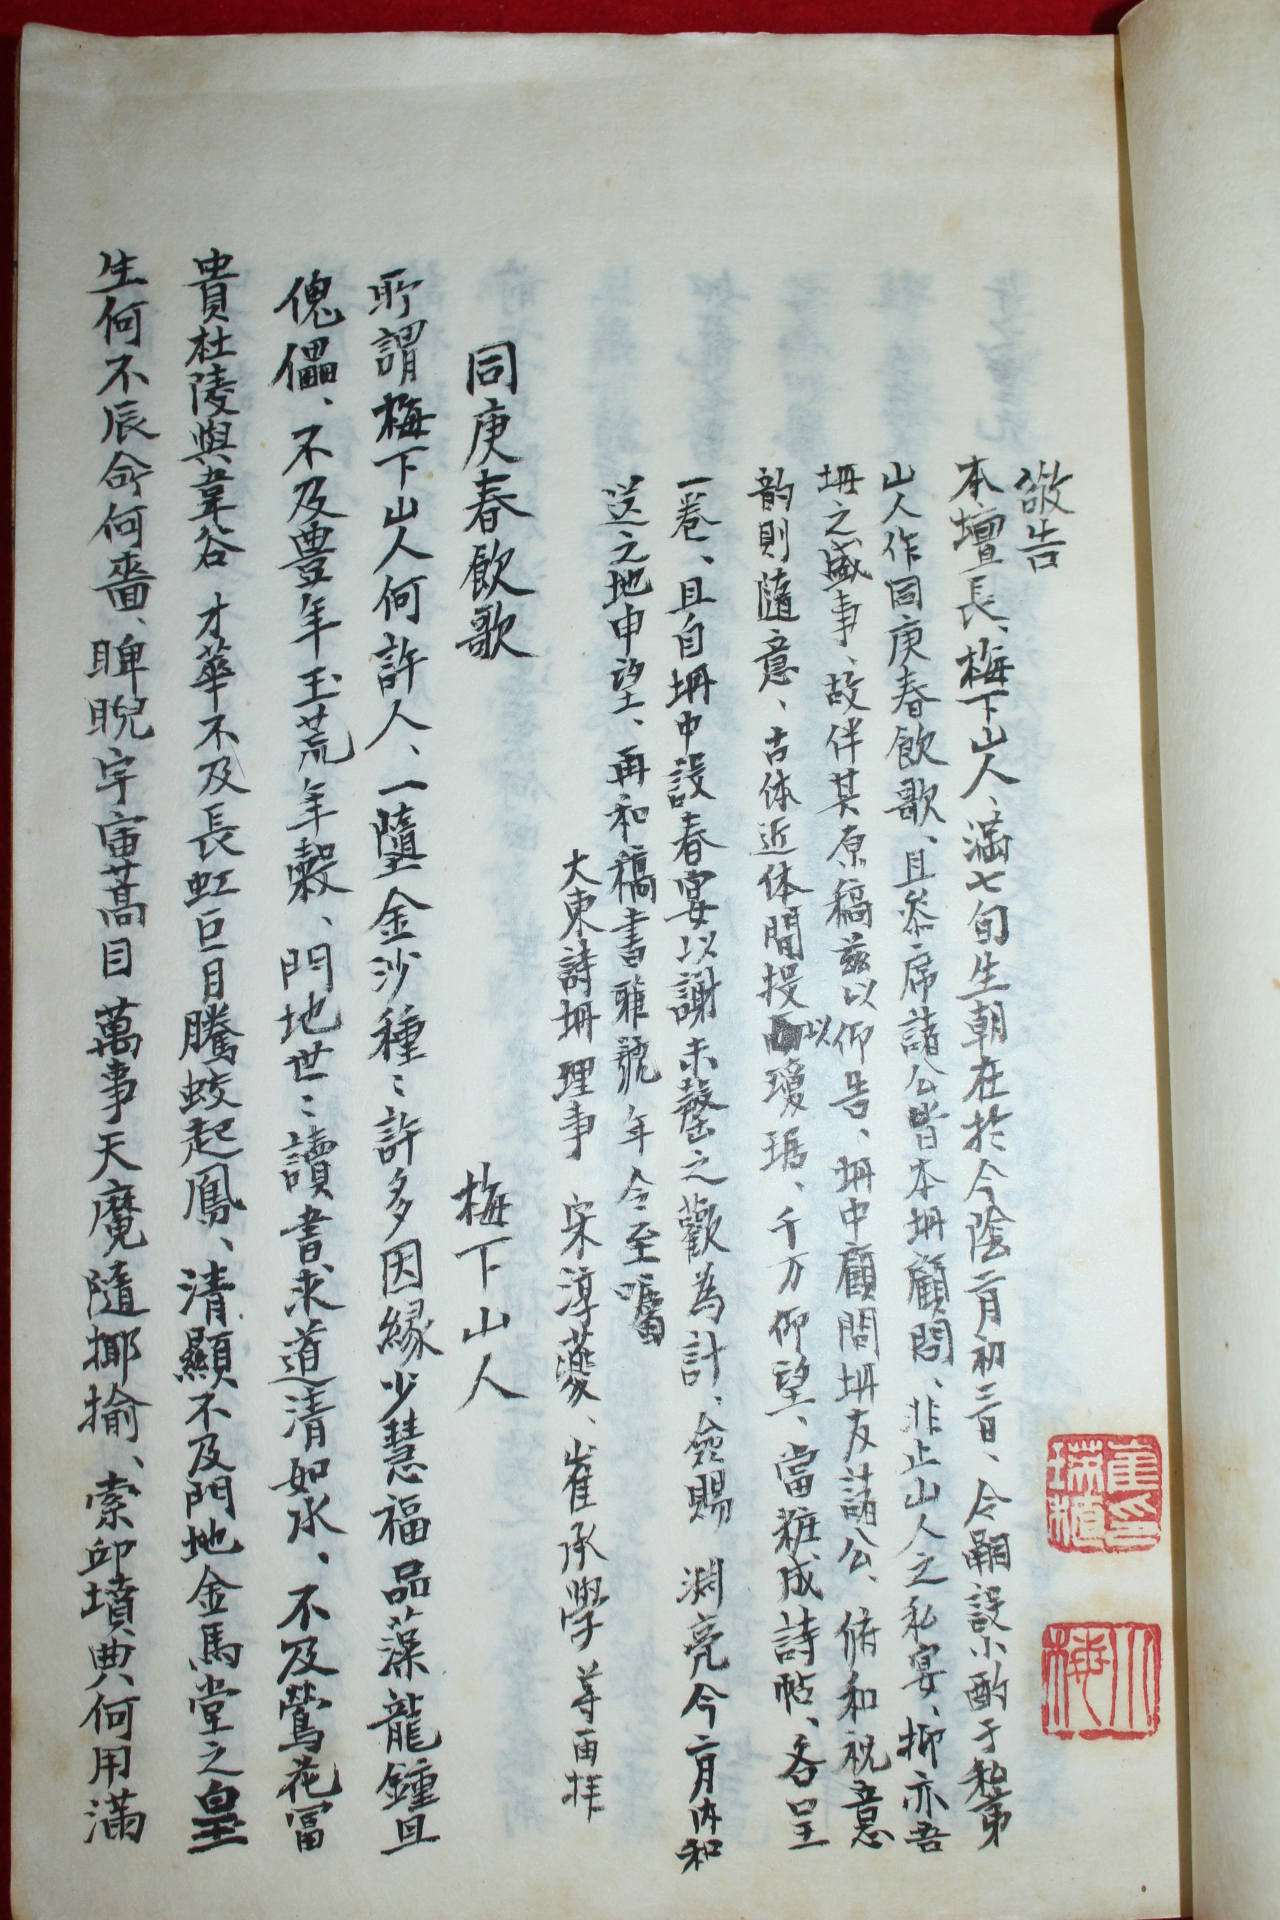 敬告
本壇長、梅下山人、滿七旬生朝在於今陰二月初三日、令嗣設小酌于私第
山人作同庚春飮歌、且參席諸公皆本坍顧問、非止山人之私宴、抑亦吾
坍之盛事、故伴其原稿玆以仰告、坍中顧問坍友諸公、俯和祝意
韵則隨意、古体近体間投以瓊琚、千万仰望、當粧成詩帖、各呈
一卷、且自坍中設春宴以謝未罄之歡爲計、僉賜 淵亮今二月內和
送之地申望、再和稿書雅號年令至囑
大東詩坍理事 宋淳夔、崔承學等再拝
同庚春飮歌 梅下山人
所謂梅下山人何許人、一墮金沙種〻許多因緣少慧福品藻龍鐘且
傀儡、不及豊年玉荒年穀、門地世〻讀書求道淸如水、不及鶯花冨
貴杜陵與韋谷 才華不及長虹巨目騰蛟起鳳、清顯不及門地金馬堂之皇
生何不辰命何嗇、睥睨宇宙蒿目萬事天魔隨揶揄、索邱墳典何用滿
崔瑞植印
小梅